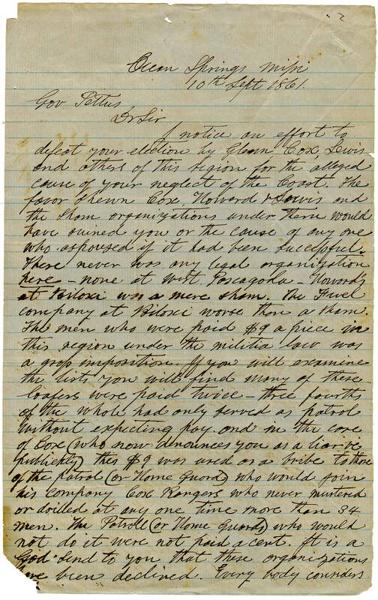 Ocean Springs Missi
10th Sept 1861.
Gov Pettus
Dr Sir
I notice an effort to
defeat your election by Glenn Cox, Lewis
and others of this region for the alleged
cause of your neglect of the Coast. The
favor shewn Cox, Howard & Lewis and
the sham organizations under them would
have ruined you or the cause of any one
who espoused if it had been successful.
There never was any legal organization
here – none at West Pascagoula – Howards
at Biloxi was a mere sham. The
company at Biloxi worse than a sham.
The men who were paid $9 a piece in
this region under the militia law was
a gross imposition – If you will examine
the lists you will find many of these
loafers were paid twice – three fourths
of the whole had only served as patrol
without expecting pay. and in the case
of Cox (who now denounces you as a liar
publickly) this $9 was used as a bribe to those
of the Patrol (or Home Guard) who would join
his company Cox Rangers who never mustered
or drilled at any one time more than 34
men. The Patroll (or Home Guards) who would
not do it were not paid a cent. It is a
God-send to you that these organizations
have been declined. Every body considers